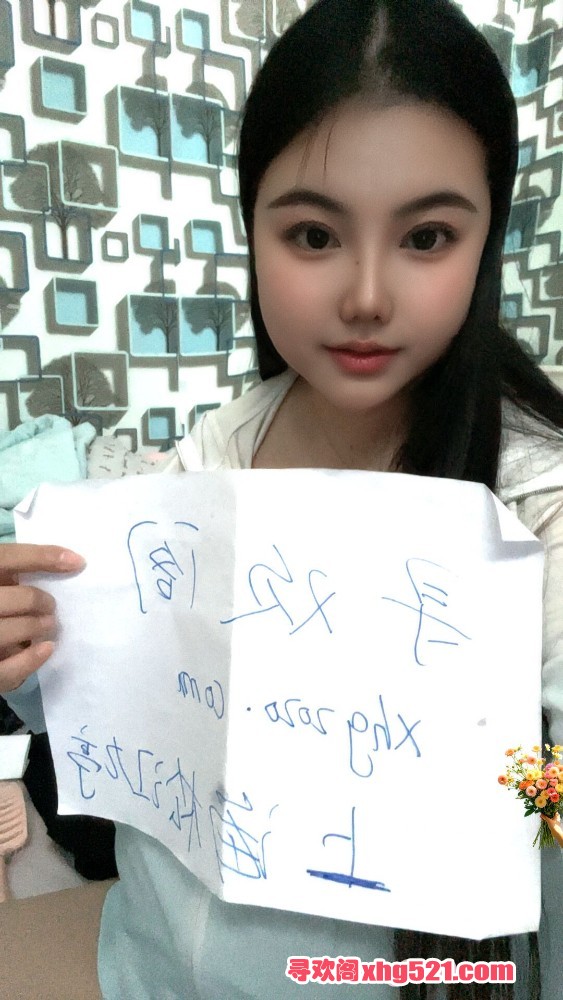 寻欢阁
xhg2020.com
上海松江九亭
寻欢阁xhg521.com